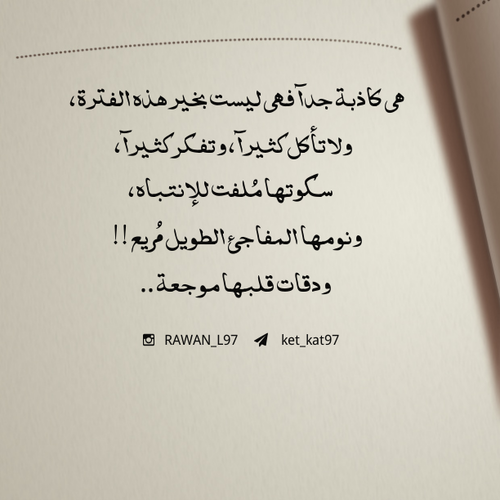 هي كاذبة جدآ فهي ليست بخير هذه الفترة،
ولا تأكل كثيرآ، وتفكر كثيرآ،
سكوتها مُلفت للإنتباه،
ونومها المفاجئ الطويل مُريع!!
ودقات قلبها موجعة..
RAWAN_L97 ket_kat97